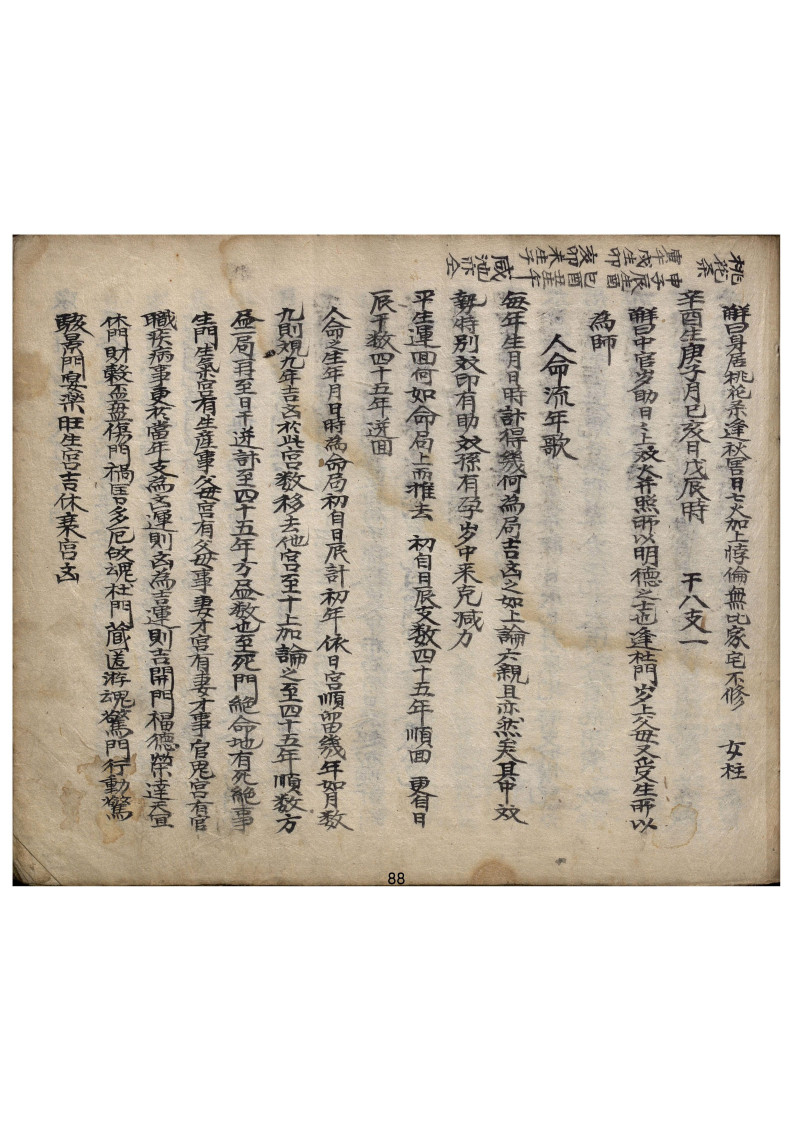 桃花煞
庚年
戌生卯
申子辰生酉
亥卯未生子
巳酉丑生年
咸池亦仝
觧曰身居桃花煞逢秋害日七火加上悖倫無比家宅不修　女柱
辛酉生庚子月已亥日戊辰時　干八支一
觧曰中宮岁助日之上双火并照所以明德之士也逢杜門岁上父母又受生所以
為師
人命流年歌
每年生月日時計得幾何為局吉凶之如上論六親且亦然矣其中双
勢特別双印有助双孫有孕岁中来克减力
平生運回何如命局上而推去　初自日辰支数四十五年順回　更自日
辰干数四十五年逆回
人命之生年月日時為命局初自日辰計初年依日宮順留幾年如月数
九則視九年吉凶於此宮数移去他宮至十上加論之至四十五年順数方
益局再至日干逆計至四十五年方益数也至死門絶命地有死絶事
生門生氣宮有生産事父母宮有父母事妻才宮有妻才事官鬼宮有官
職疾病事更於當年支為凶運則凶為吉運則吉開門福德榮達天宜
休門財穀盃盘傷門禍害多厄敀魂杜門蔵匿游魂驚門行動驚
駭景門宴樂旺生宮吉休棄宮凶
88